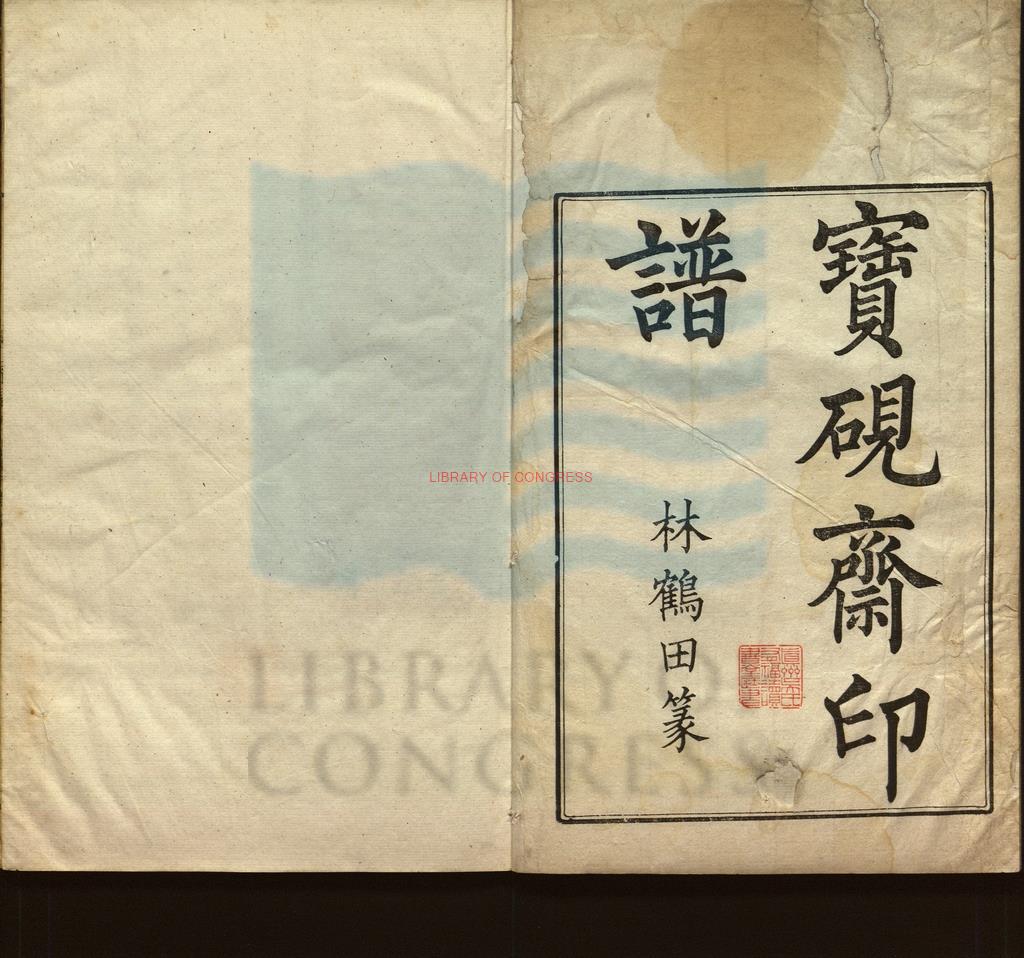 寶硯齋印
譜
林鶴田篆
LIBRARY OF CONGRESS
LIBRARY OF
CONGRESS